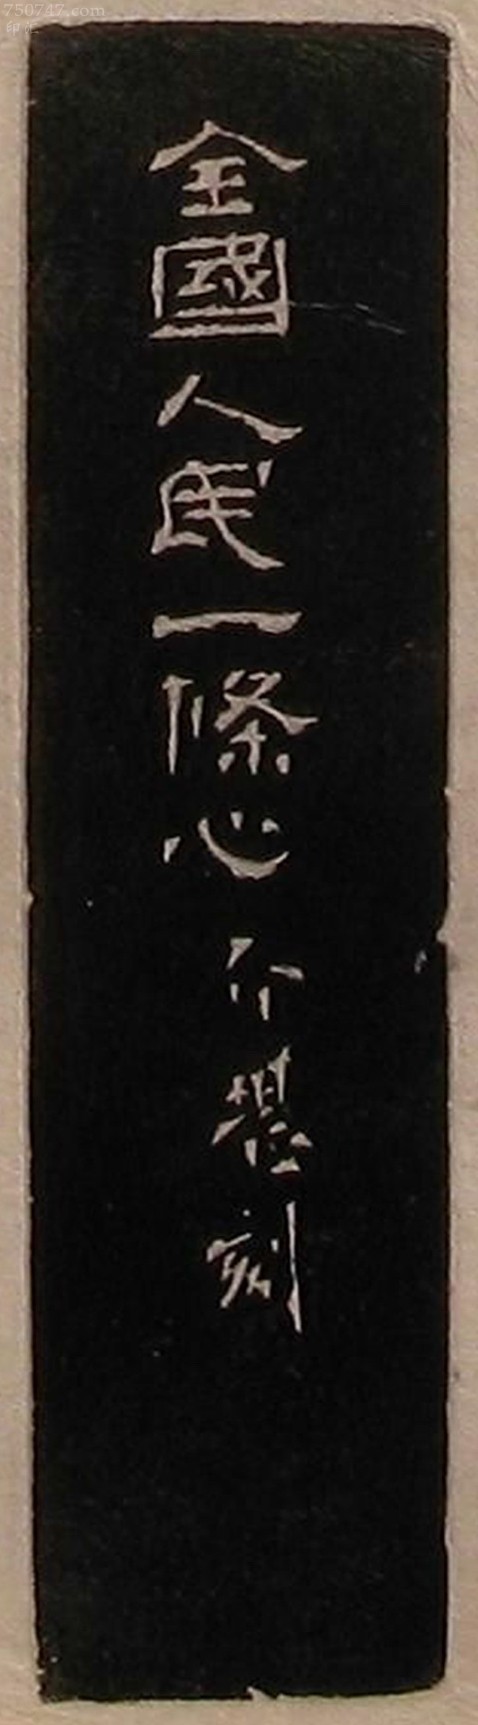 750747.com
全國人民一條心
介堪刻